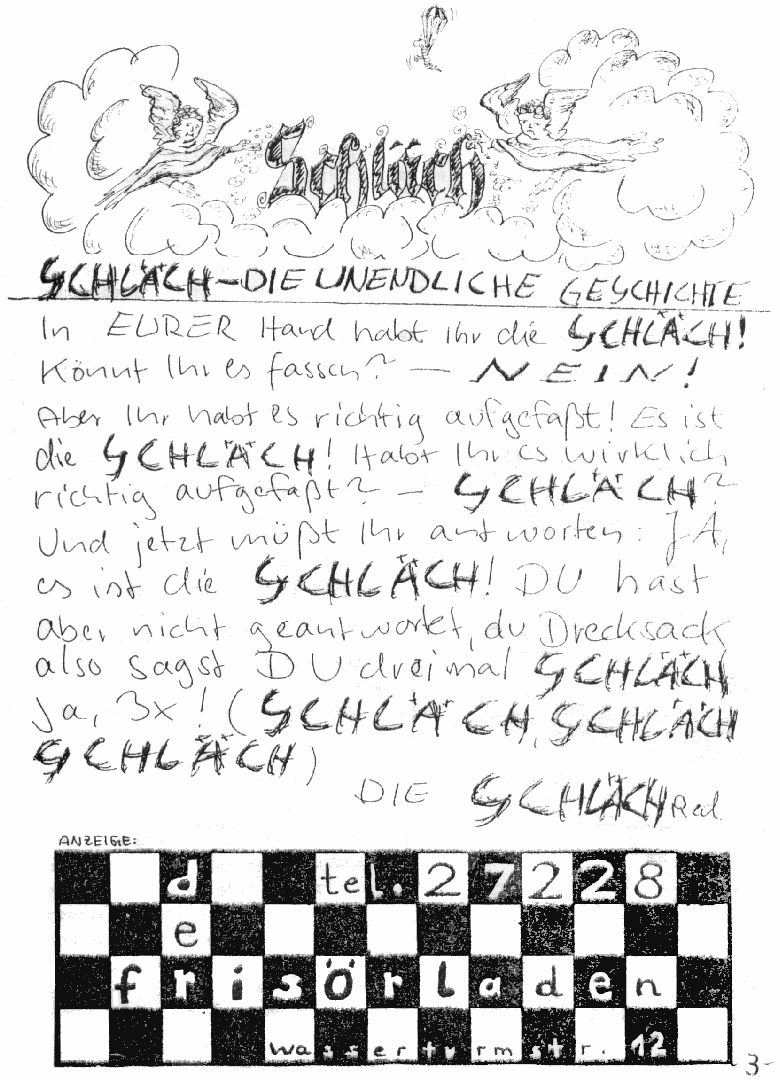 Schläch
SCHLÄCH – DIE UNENDLICHE GESCHICHTE
In EURER Hand habt Ihr die SCHLÄCH!
Könnt Ihr es fassen? – NEIN!
Aber Ihr habt es richtig aufgefaßt! Es ist
die SCHLÄCH! Habt Ihr es wirklich
richtig aufgefaßt? – SCHLÄCH?
Und jetzt müßt Ihr antworten: JA,
es ist die SCHLÄCH! DU hast
aber nicht geantwortet, du Drecksack
also sagst DU dreimal SCHLÄCH
Ja, 3x! (SCHLÄCH, SCHLÄCH
SCHLÄCH)
DIE SCHLÄCH Red.
ANZEIGE:
d tel. 27228
e
frisörladen
wasserturmstr. 12
3-